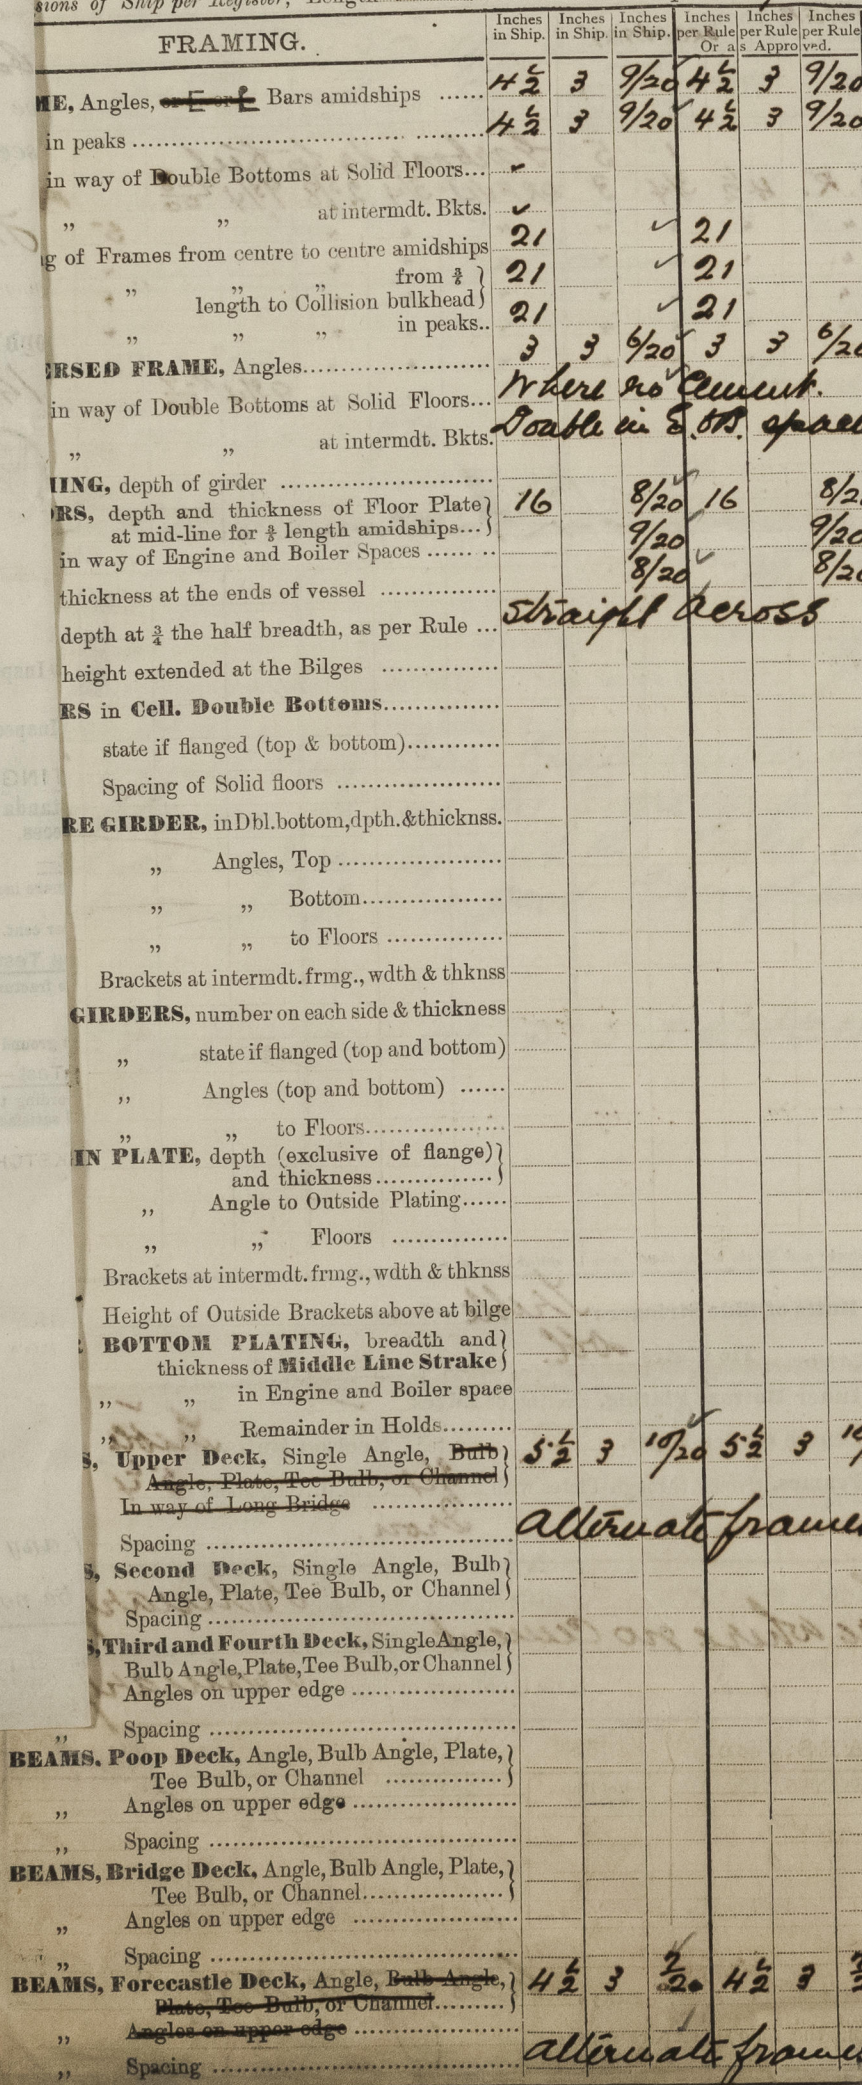 sions of Ship per Register,
FRAMING.
Inches in Ship. Inches in Ship. Inches in Ship. Inches per Rule Inches per Rule Inches per Rule
Or as Approved.
ME, Angles, or E or Ɛ Bars amidships ...... 4½ 3 9/20 4½ 3 9/20
in peaks ........ 4½ 3 9/20 4½ 3 9/20
in way of Double Bottoms at Solid Floors... ✓
„ „ at intermdt. Bkts. ✓
g of Frames from centre to centre amidships 21 ✓ 21
„ „ „ from ⅗ } 21 ✓ 21
length to Collision bulkhead } 21 ✓ 21
„ „ „ in peaks..
ERSED FRAME, Angles........ 3 3 6/20 3 3 6/20
in way of Double Bottoms at Solid Floors... Where no Cement.
„ „ at intermdt. Bkts. Double in E. & B. space
MING, depth of girder ........
RS, depth and thickness of Floor Plate } 16 8/20 16 8/2
at mid-line for ⅗ length amidships... }
in way of Engine and Boiler Spaces ...... 9/20 9/20
thickness at the ends of vessel ........ 8/20 8/20
depth at ¾ the half breadth, as per Rule ... Straight across
height extended at the Bilges ........
RS in Cell. Double Bottoms........
state if flanged (top & bottom)........
Spacing of Solid floors ........
RE GIRDER, in Dbl. bottom, dpth. & thicknss.
„ Angles, Top ........
„ „ Bottom........
„ „ to Floors ........
Brackets at intermdt. frmg., wdth & thknss
GIRDERS, number on each side & thickness
„ state if flanged (top and bottom)
„ Angles (top and bottom) ......
„ „ to Floors........
IN PLATE, depth (exclusive of flange) }
and thickness........ }
„ Angle to Outside Plating......
„ „ Floors ........
Brackets at intermdt. frmg., wdth & thknss
Height of Outside Brackets above at bilge
BOTTOM PLATING, breadth and }
thickness of Middle Line Strake }
„ „ in Engine and Boiler space
„ „ Remainder in Holds.........
S, Upper Deck, Single Angle, Bulb } 5½ 3 10/20 5½ 3 10/
Angle, Plate, Tee Bulb, or Channel }
In way of Long Bridge ........
Spacing ........ alternate frames
S, Second Deck, Single Angle, Bulb }
Angle, Plate, Tee Bulb, or Channel }
Spacing ........
S, Third and Fourth Deck, Single Angle, }
Bulb Angle, Plate, Tee Bulb, or Channel }
Angles on upper edge ........
„ Spacing ........
BEAMS, Poop Deck, Angle, Bulb Angle, Plate, }
Tee Bulb, or Channel ........ }
„ Angles on upper edge ........
„ Spacing ........
BEAMS, Bridge Deck, Angle, Bulb Angle, Plate, }
Tee Bulb, or Channel........ }
„ Angles on upper edge ........
„ Spacing ........
BEAMS, Forecastle Deck, Angle, Bulb Angle, } 4½ 3 7/20 4½ 3
Plate, Tee Bulb, or Channel......... }
„ Angles on upper edge ........
„ Spacing ........ alternate frames